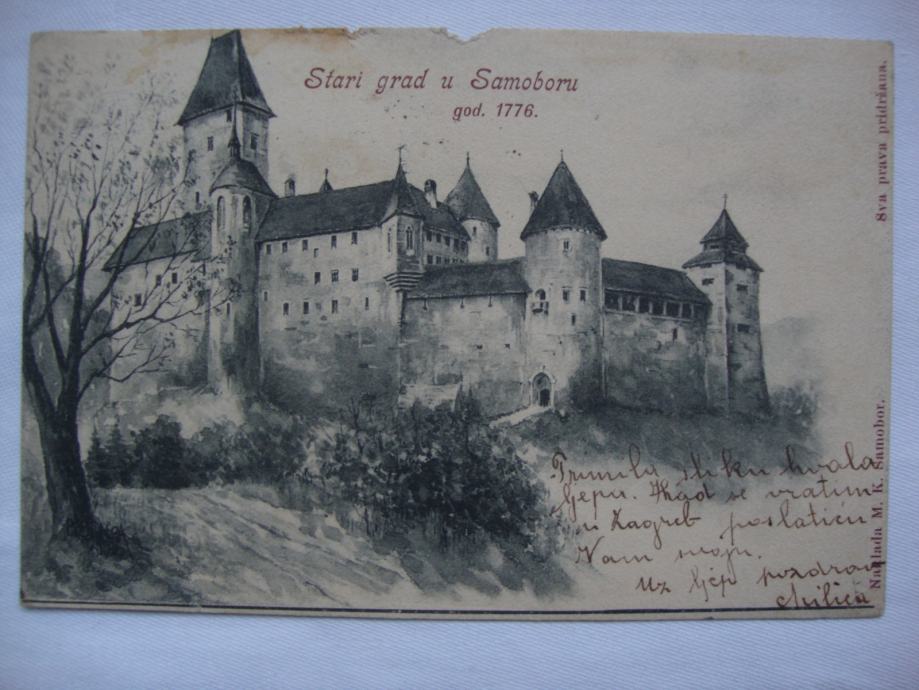 Stari grad u Samoboru
god. 1776.
Sva prava pridržana.
Naklada M. K. Samobor.
Primila sliku hvala
ljepa. Kad se vratim
u Zagreb poslatiću
Vam moju.
Uz ljep pozdrav
Milica